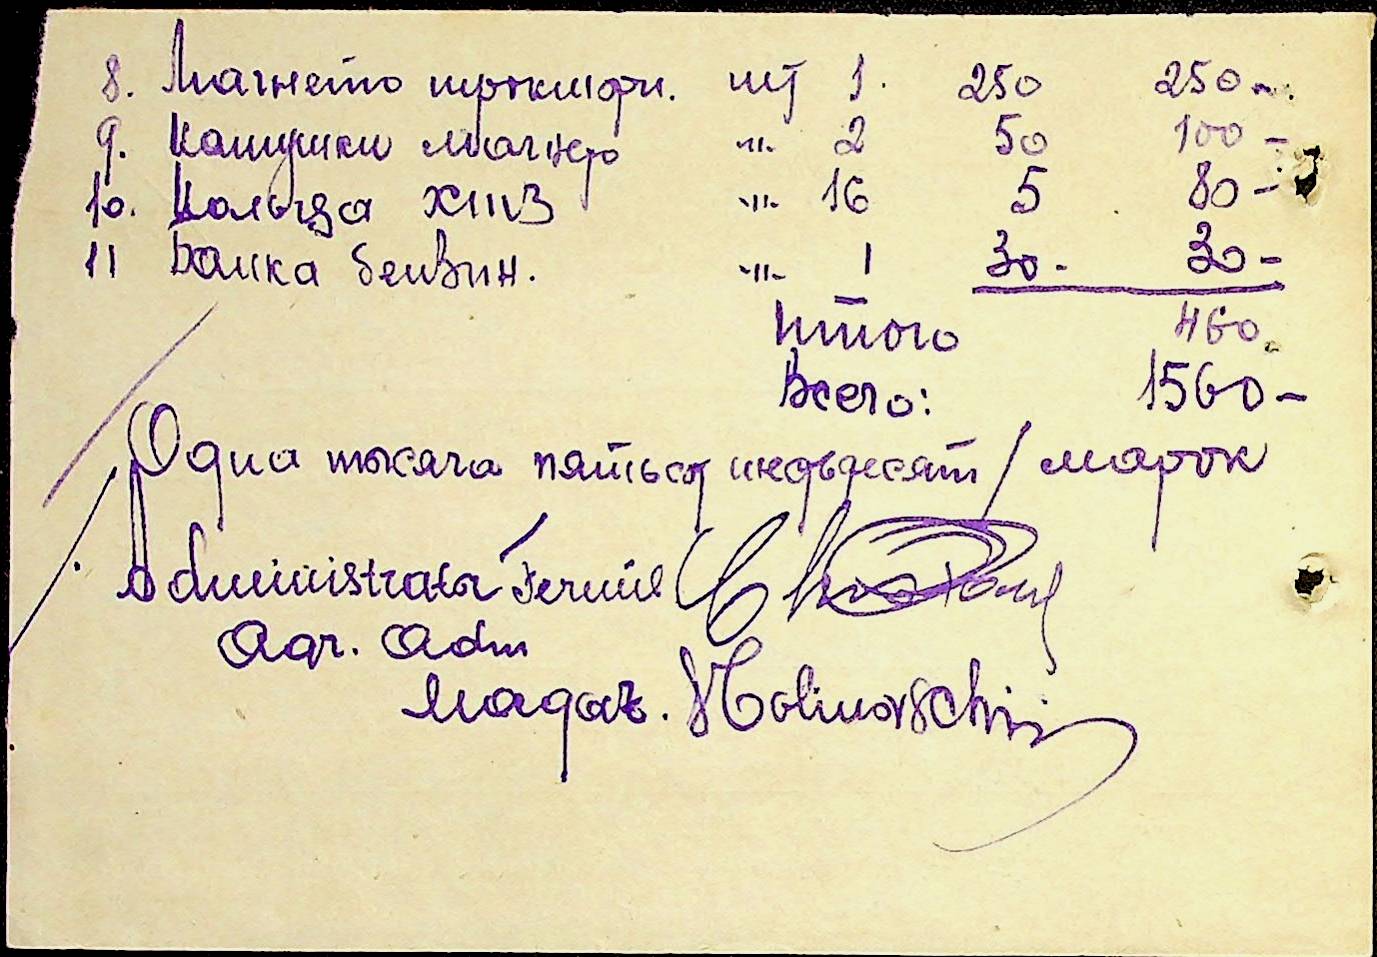 8. Магнето троктори. шт 1. 250 250-
9. Катушки магнето -"- 2 50 100-
10. Кольца ХТЗ -"- 16 5 80-
11 Банка бензин. -"- 1 30- 30-
Итого 460
Всего: 1560-
Одна тысяча пятьсот шедьдесят / марок
Administrator Fermei
Agr. Adm
Magaz. Malinovschi